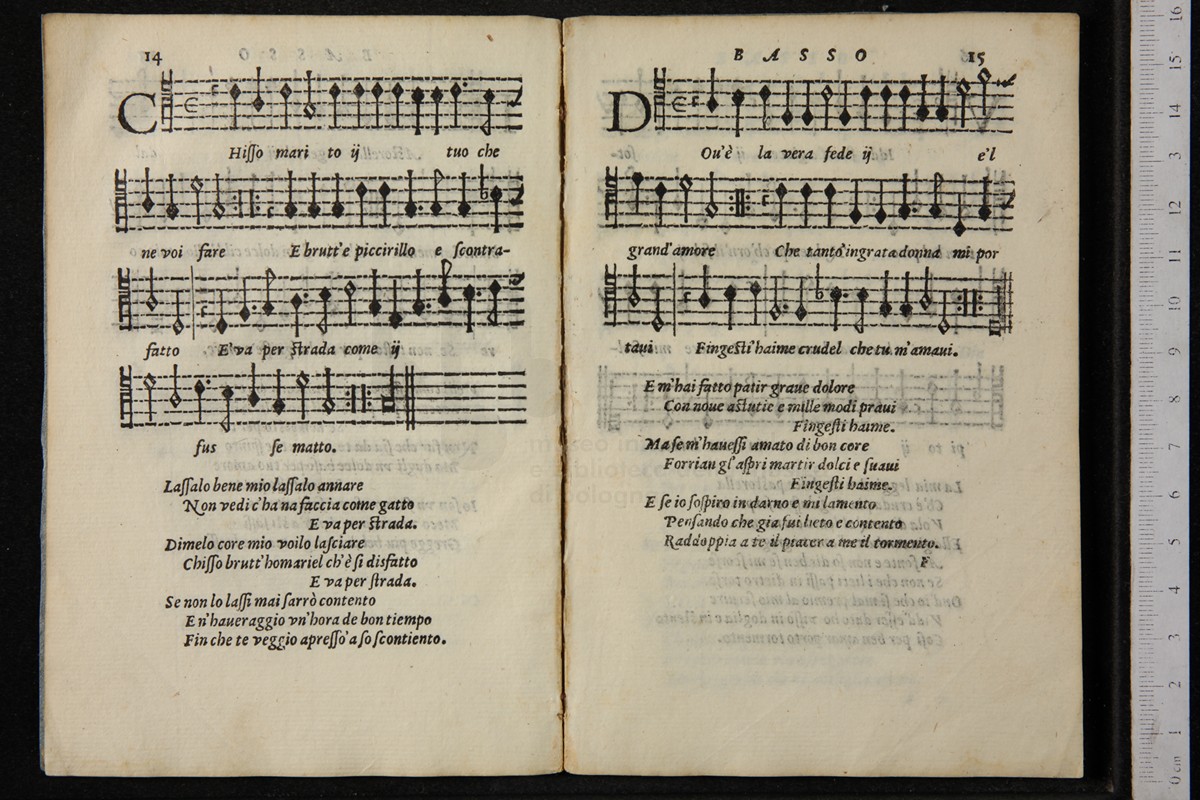 14
CHisso mari to ij tuo che
ne voi fare E brutt'e piccirillo e scontra-
fatto E'va per strada come ij
fus se matto.
Lassalo bene mio lassalo annare
Non vedi c'ha na faccia come gatto
E va per strada.
Dimelo core mio voilo lasciare
Chisso brutt'homariel ch'è sì disfatto
E va per strada.
Se non lo lassi mai sarrò contento
E n'haueraggio vn'hora de bon tiempo
Fin che te veggio apresso'a so scontiento.
BASSO 15
DOu'è la vera fede ij e'l
grand'amore Che tanto'ingrata donna mi por
taui Fingesti'haime crudel che tu m'amaui.
E m'hai fatto patir graue dolore
Con noue astutie e mille modi praui
Fingesti haime.
Ma se m'hauessi amato di bon core
Forrian gl'aspri martir dolci e suaui
Fingesti haime.
E se io sospiro in darno e mi lamento
Pensando che gia fui lieto e contento
Raddoppia a te il piacer a me il tormento.
F
museo in
e biblioteca
di bologn
16
15
14
13
12
11
10
9
8
7
6
5
4
3
2
1
0 cm